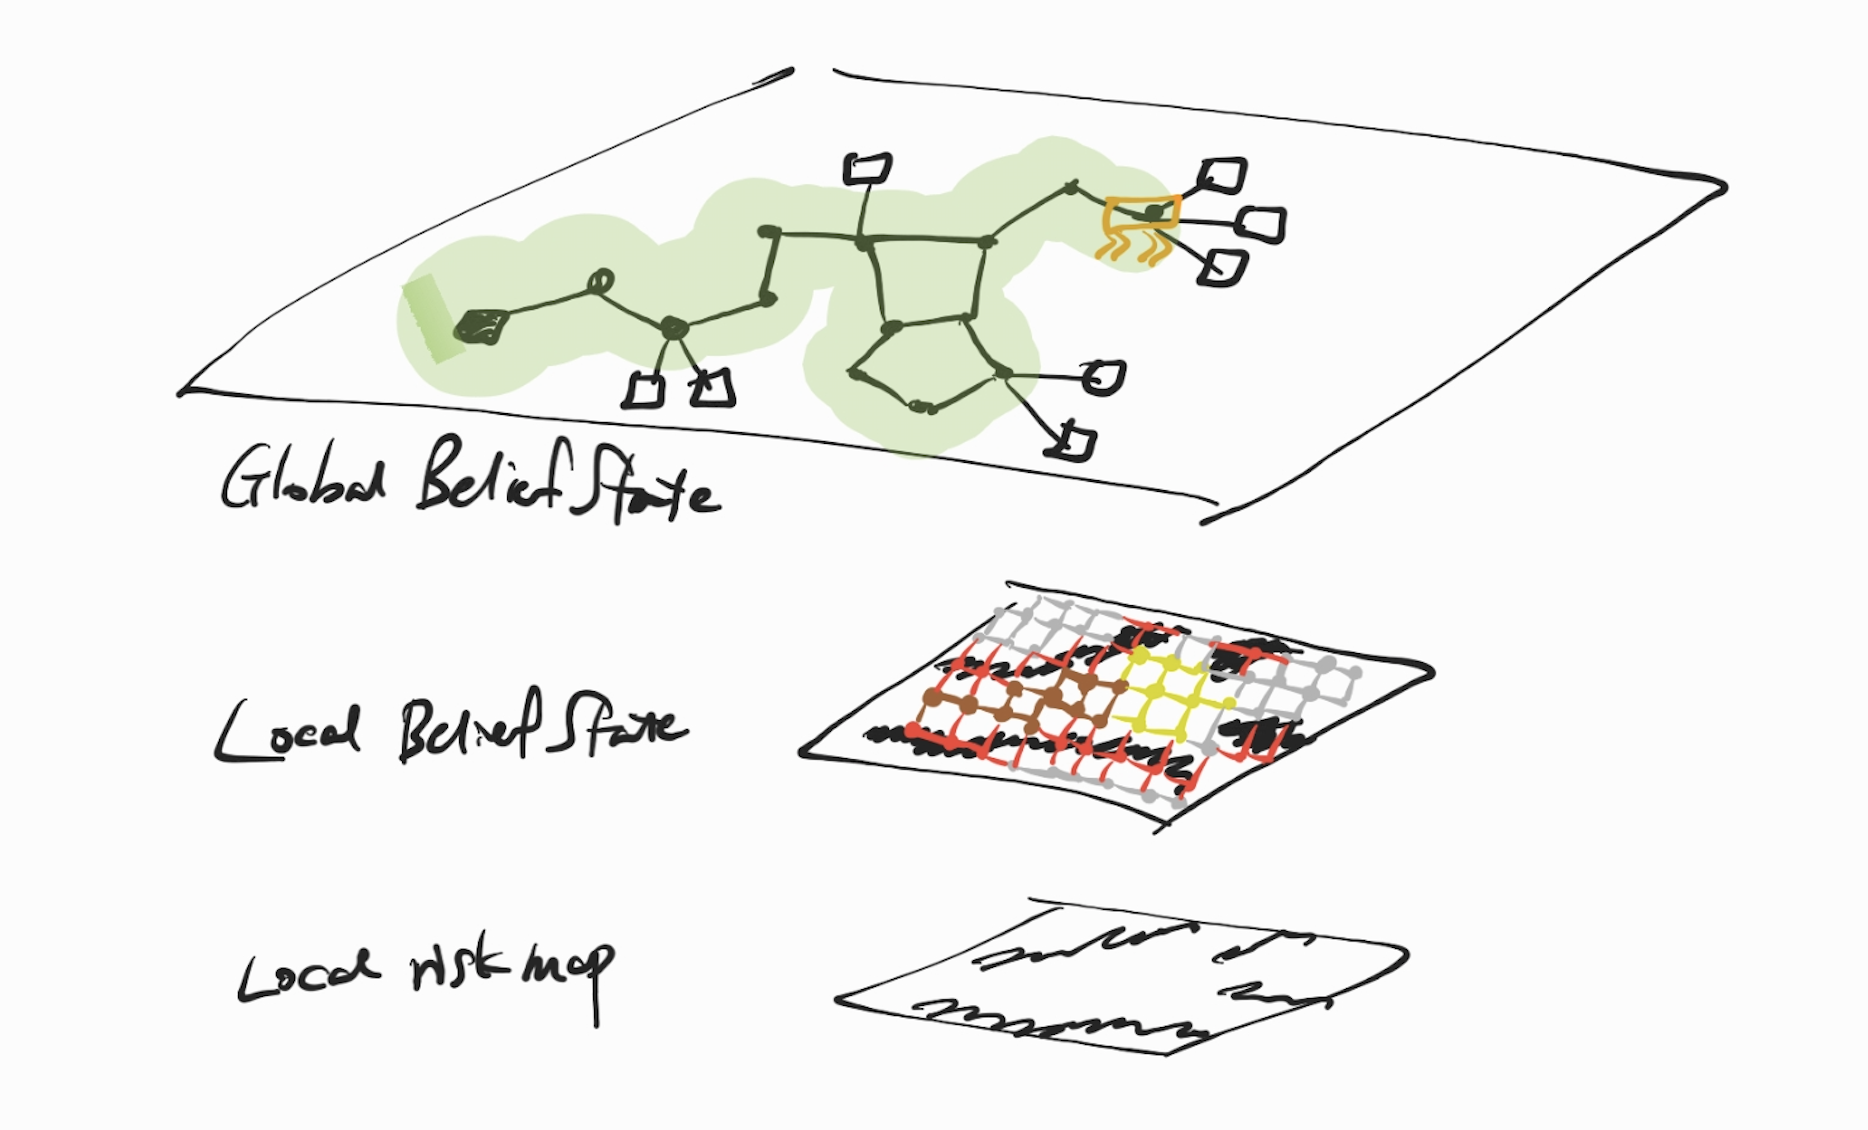 Global Belief State
Local Belief State
Local risk map